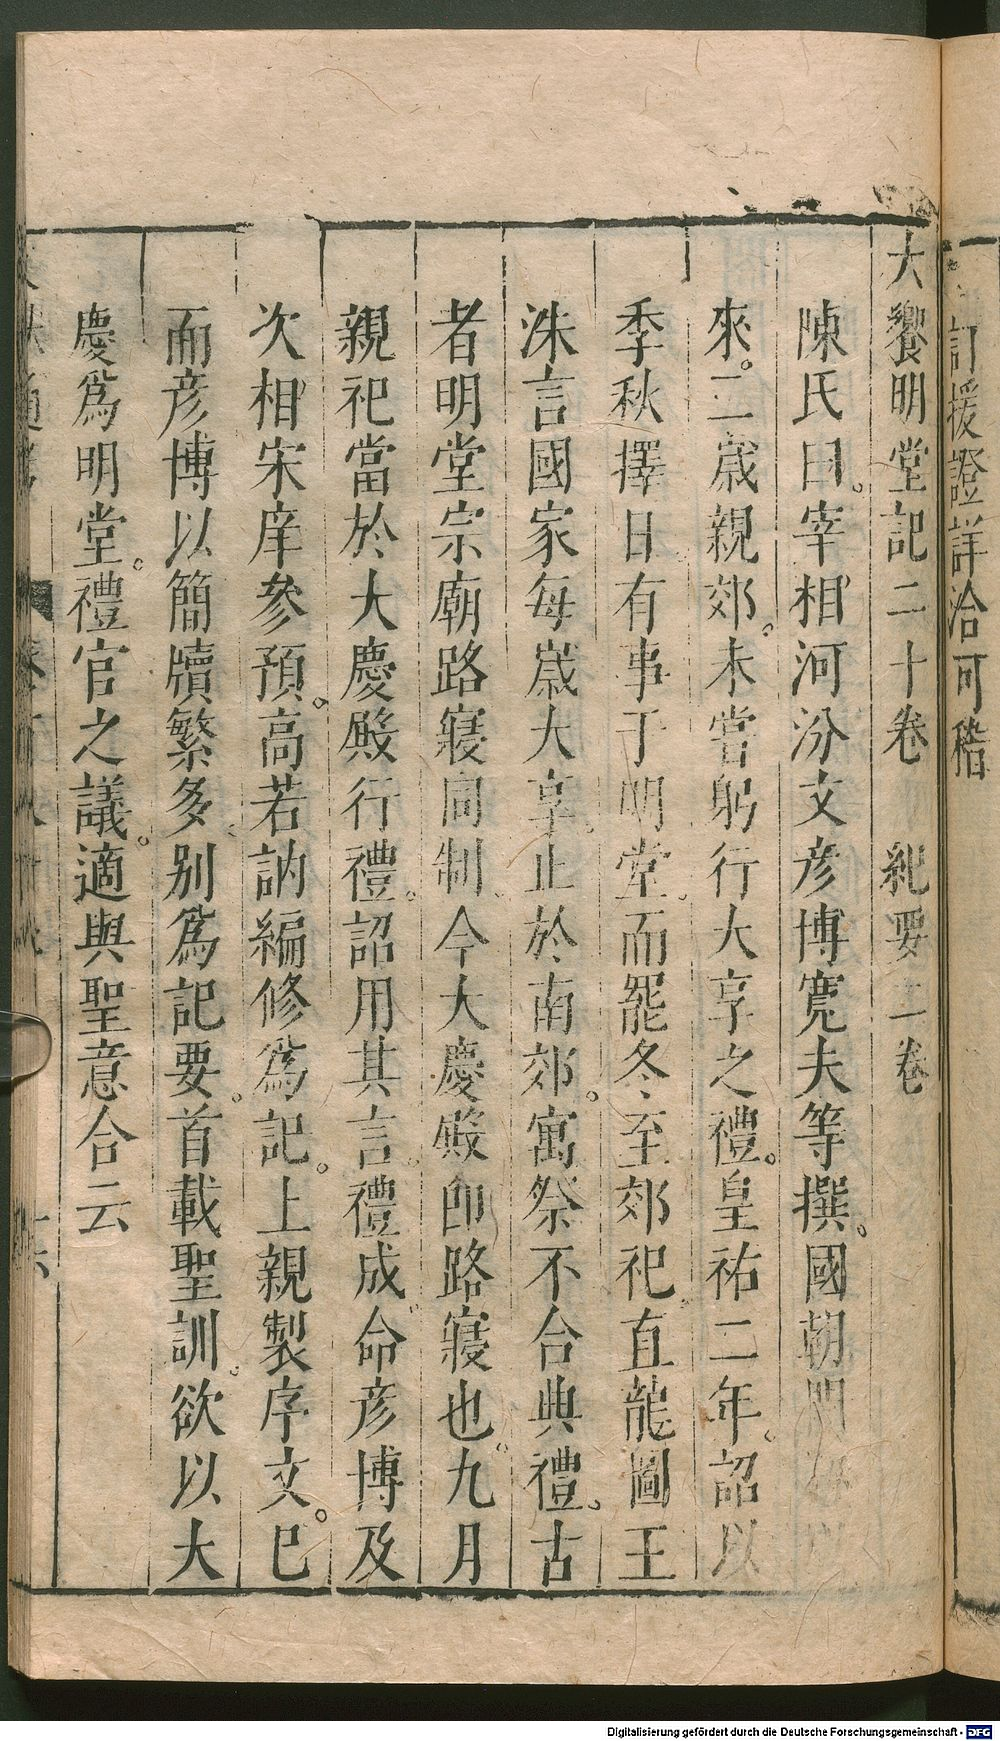 訂援證詳洽可稽
大饗明堂記二十卷　紀要二卷
陳氏曰。宰相河汾文彥博寬夫等撰。國朝開以
來。三歲親郊。未嘗躬行大享之禮。皇祐二年。詔以
季秋擇日有事于明堂。而罷冬至郊祀。直龍圖王
洙言國家每歲大享。止於南郊。寓祭不合典禮。古
者明堂宗廟路寢同制。今大慶殿即路寢也。九月
親祀當於大慶殿行禮。詔用其言。禮成。命彥博及
次相宋庠參預。高若訥編修為記。上親製序文。已
而彥博以簡牘繁多。別為記要。首載聖訓。欲以大
慶為明堂。禮官之議。適與聖意合云
Digitalisierung gefördert durch die Deutsche Forschungsgemeinschaft - DFG